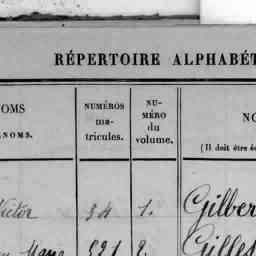 RÉPERTOIRE ALPHABÉT
NOMS
NOMS.
NUMÉROS
ma-
tricules.
NU-
MÉRO
du
volume.
NO
(Il doit être é
Victor 34 1. Gilber
Marie 521 2. Gilles